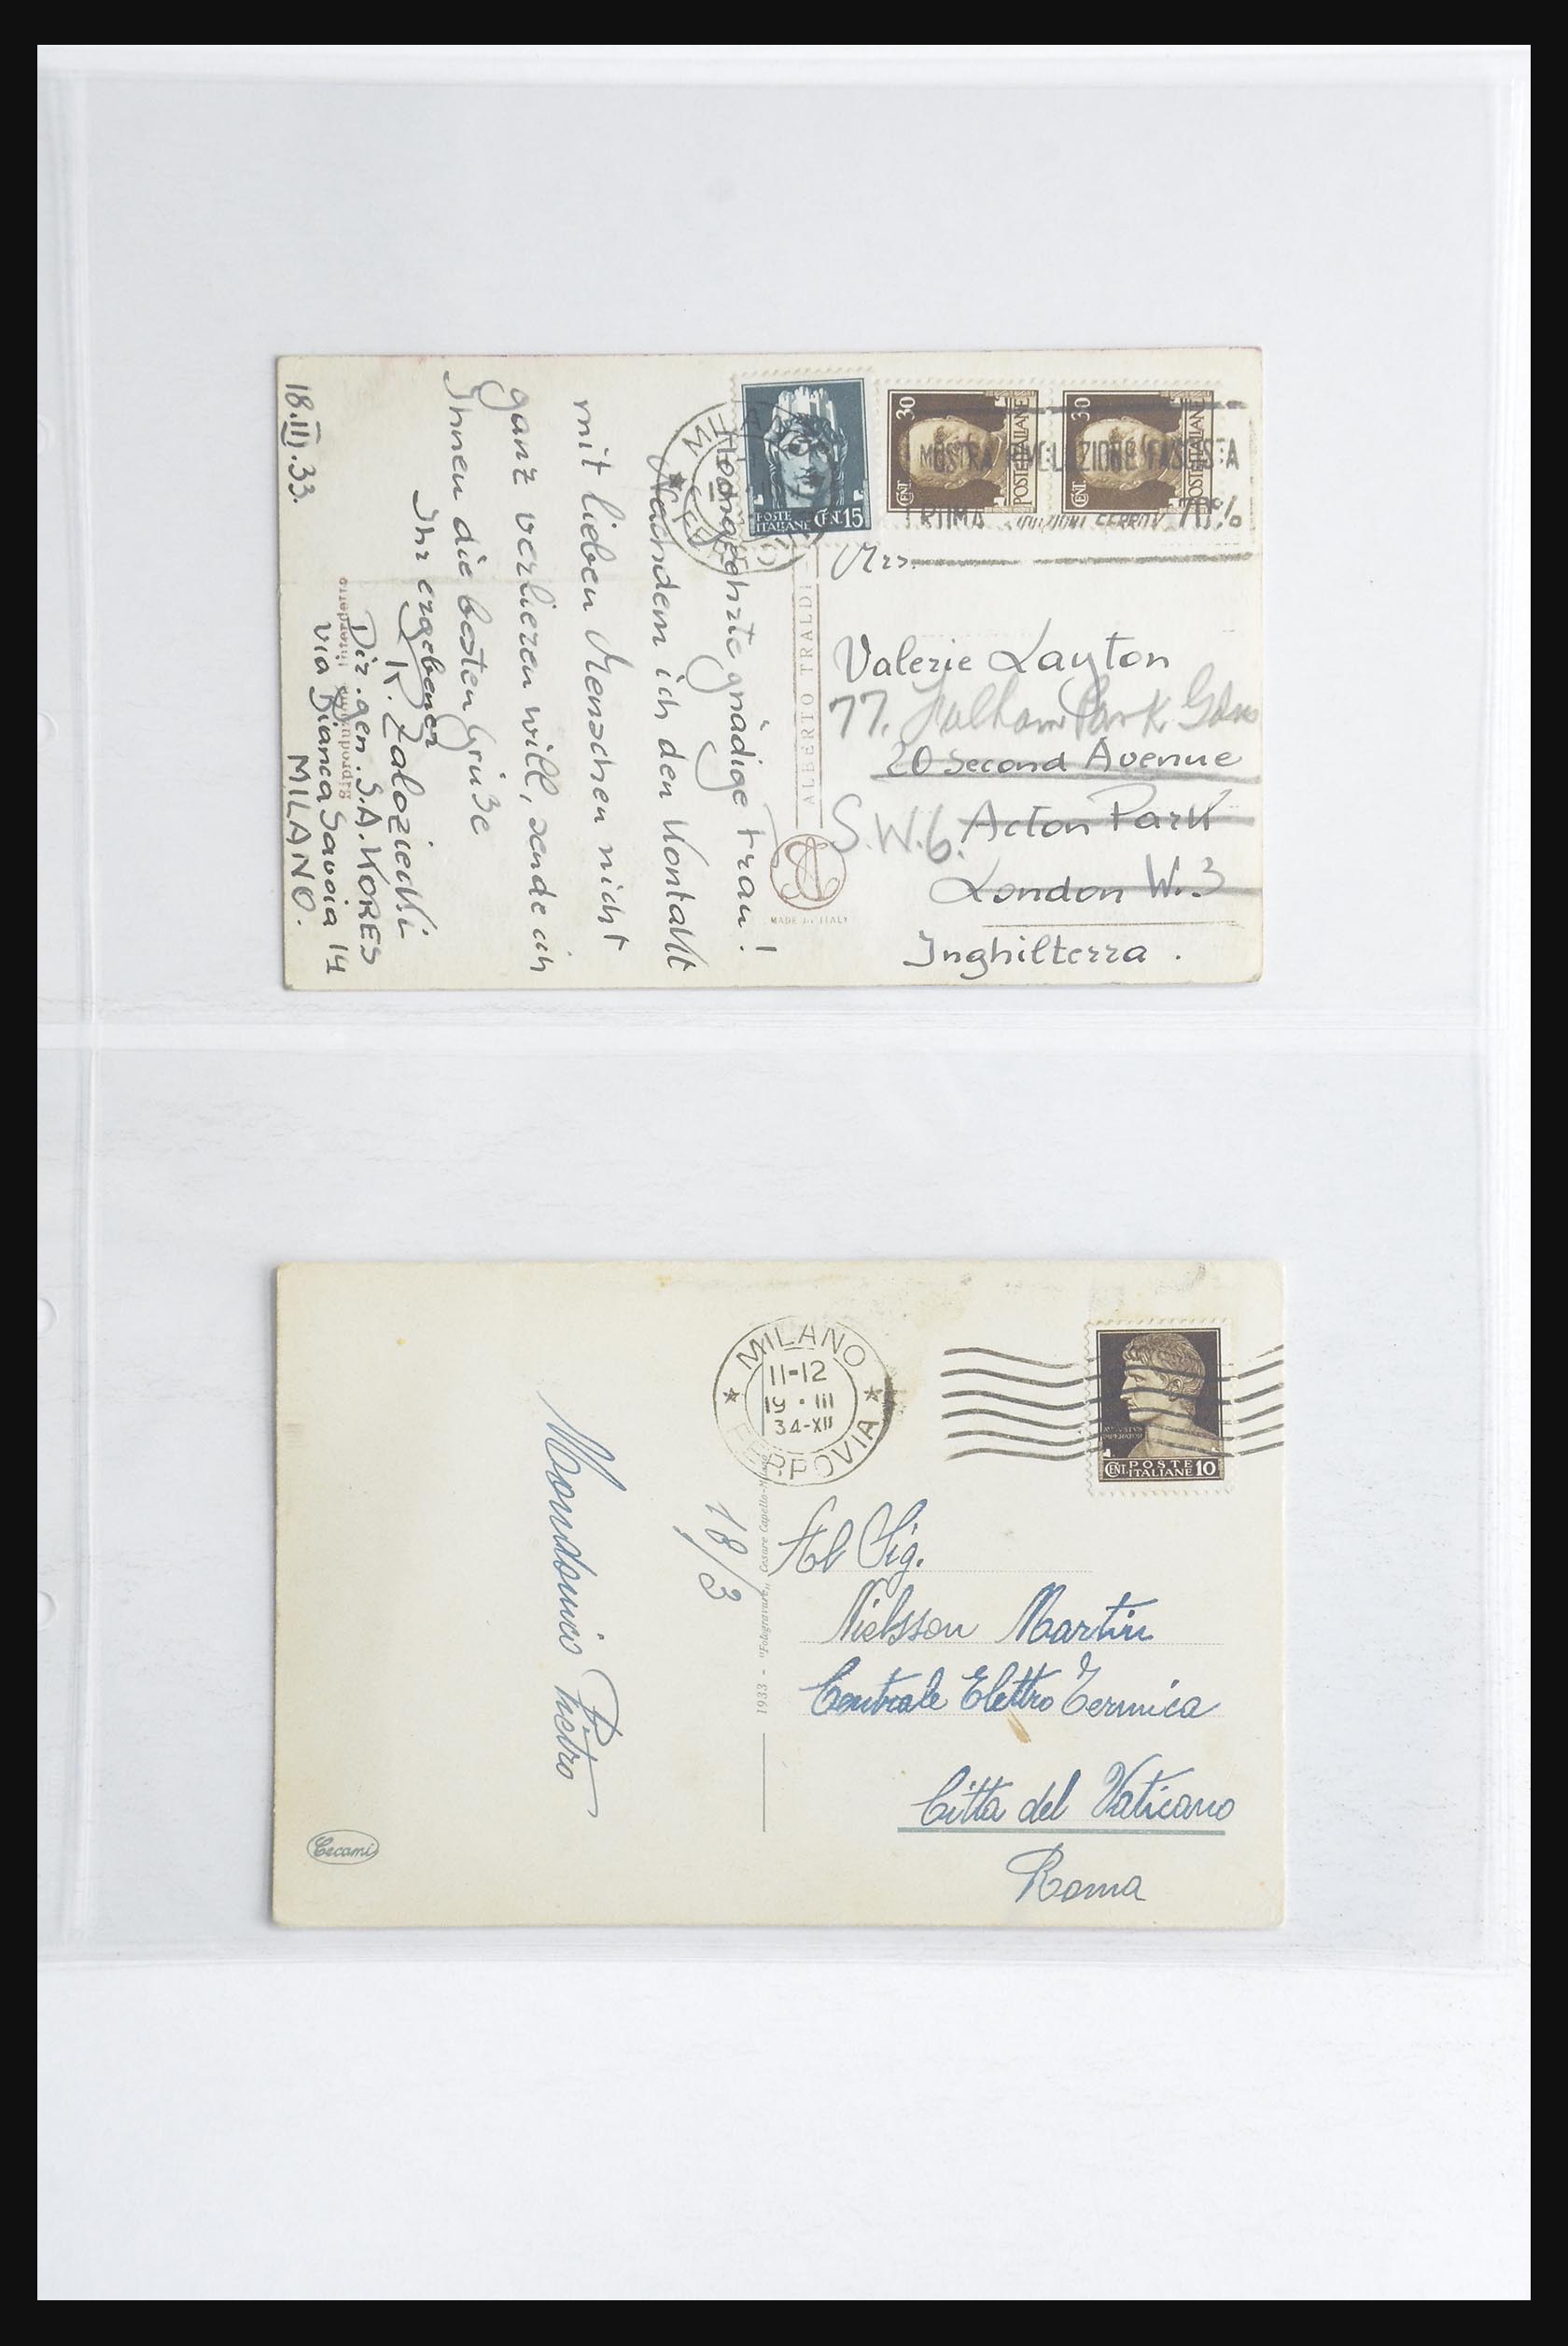 18.III.33.
Hochgeehrte gnädige Frau!
Nachdem ich den Kontakt
mit lieben Menschen nicht
ganz verlieren will, sende ich
Ihnen die besten Grüße
Ihr ergebener
K. Zaloziecki
Dir. gen. S.A. KORES
Via Bianca Savoia 14
MILANO.
Riproduzione interdetta
ALBERTO TRALDI
MADE IN ITALY
POSTE
ITALIANE CENT. 15
30
CENT.
POSTE ITALIANE
30
CENT.
POSTE ITALIANE
MOSTRA RIVOLUZIONE FASCISTA
ROMA 70%
Mrs.
Valerie Layton
77. Fulham Park Gdns
20 Second Avenue
S.W.6. Acton Park
London W.3
Inghilterra.
MILANO
11-12
19 · III
34-XII
FERROVIA
CENT. POSTE
ITALIANE 10
18/3
Mondonico Pietro
1933 - "Fotogravure" Cesare Capello-Milano
Al Sig.
Nielsson Martin
Centrale Elettro Termica
Città del Vaticano
Roma
Cecami